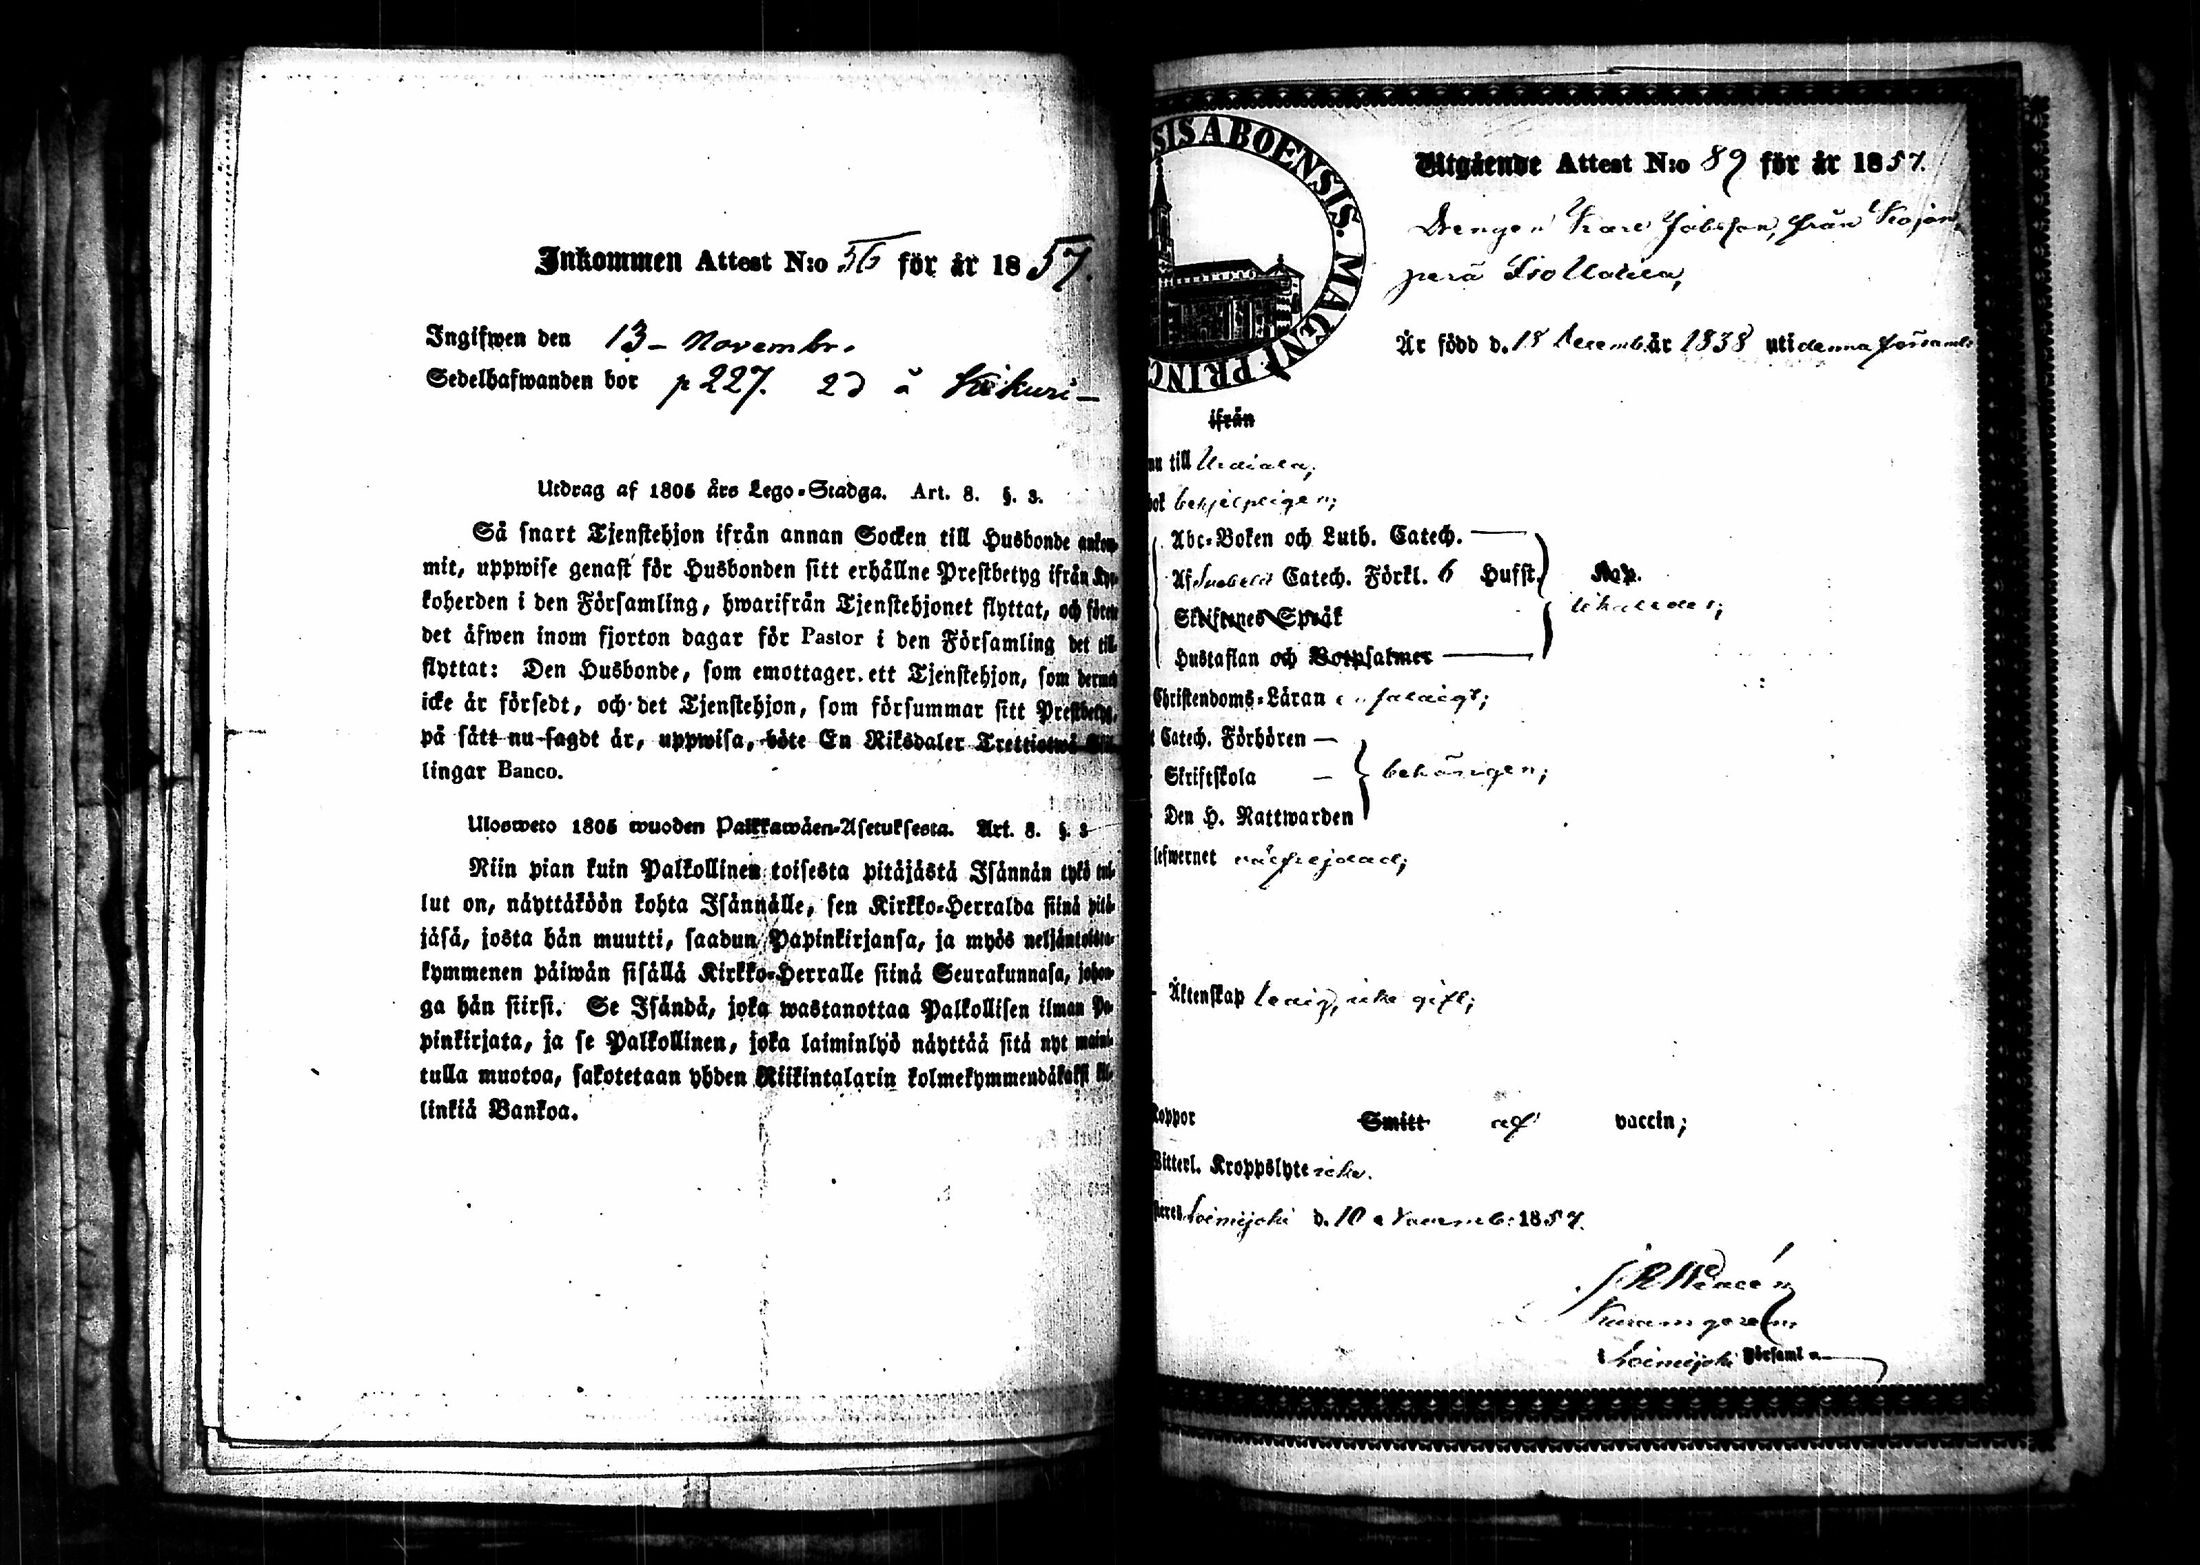 Inkommen Attest N:o 56 för år 1857.
Ingifwen den 13 – Novembr.
Sedelhafwanden bor p 227. 2d å Kikuri –
Utdrag af 1805 års Lego-Stadga. Art. 8. §. 3.
Så snart Tjenstehjon ifrån annan Socken till Husbonde ankom-
mit, uppwise genast för Husbonden sitt erhållne Prestbetyg ifrån Kyr-
koherden i den Församling, hwarifrån Tjenstehjonet flyttat, och förete
det äfwen inom fjorton dagar för Pastor i den Församling det till-
flyttat: Den Husbonde, som emottager ett Tjenstehjon, som dermed
icke är försedt, och det Tjenstehjon, som försummar sitt Prestbetyg,
på sätt nu sagdt är, uppwisa, böte En Riksdaler Trettiotwå Skil-
lingar Banco.
Ulosweto 1805 wuoden Palkkawäen-Asetuksesta. Art. 8. §. 3
Niin pian kuin Palkollinen toisesta pitäjästä Isännän tykö tul-
lut on, näyttäköön kohta Isännälle, sen Kirkko-Herralda siinä pitä-
jäsä, josta hän muutti, saadun Papinkirjansa, ja myös neljäntoista-
kymmenen päiwän sisällä Kirkko-Herralle siinä Seurakunnasa, johon-
ga hän siirsi. Se Isändä, joka wastanottaa Palkollisen ilman Pa-
pinkirjata, ja se Palkollinen, joka laiminlyö näyttää sitä nyt maini-
tulla muotoa, sakotetaan yhden Riikintalarin kolmekymmendäkaksi kil-
linkiä Bankoa.
SIS ABOENSIS. MAGNI PRINC
Utgående Attest N:o 89 för år 1857.
Drengen Karl Jakobsson, från Kojon-
perä Iso Uotila,
Är född d. 18 Decemb. år 1838 uti denna församl
ifrån
nu till Urdiala,
bok behjelpligen;
Abc-Boken och Luth. Catech.
Af Svebelii Catech. Förkl. 6 Hufst. Kap.
likaledes;
Skriftenes Språk
Hustaflan och Botpsalmer
Christendoms-Läran enfaldigt;
Catech. Förhören –
Skriftskola – behörigen;
Den H. Nattwarden
lefwernet wälfrejdad;
Äktenskap ledig, icke gift;
Koppor Smitt af vaccin;
Witterl. Kroppslyte icke.
Loimijoki d. 10 Novemb: 1857.
i Loimijoki Församl